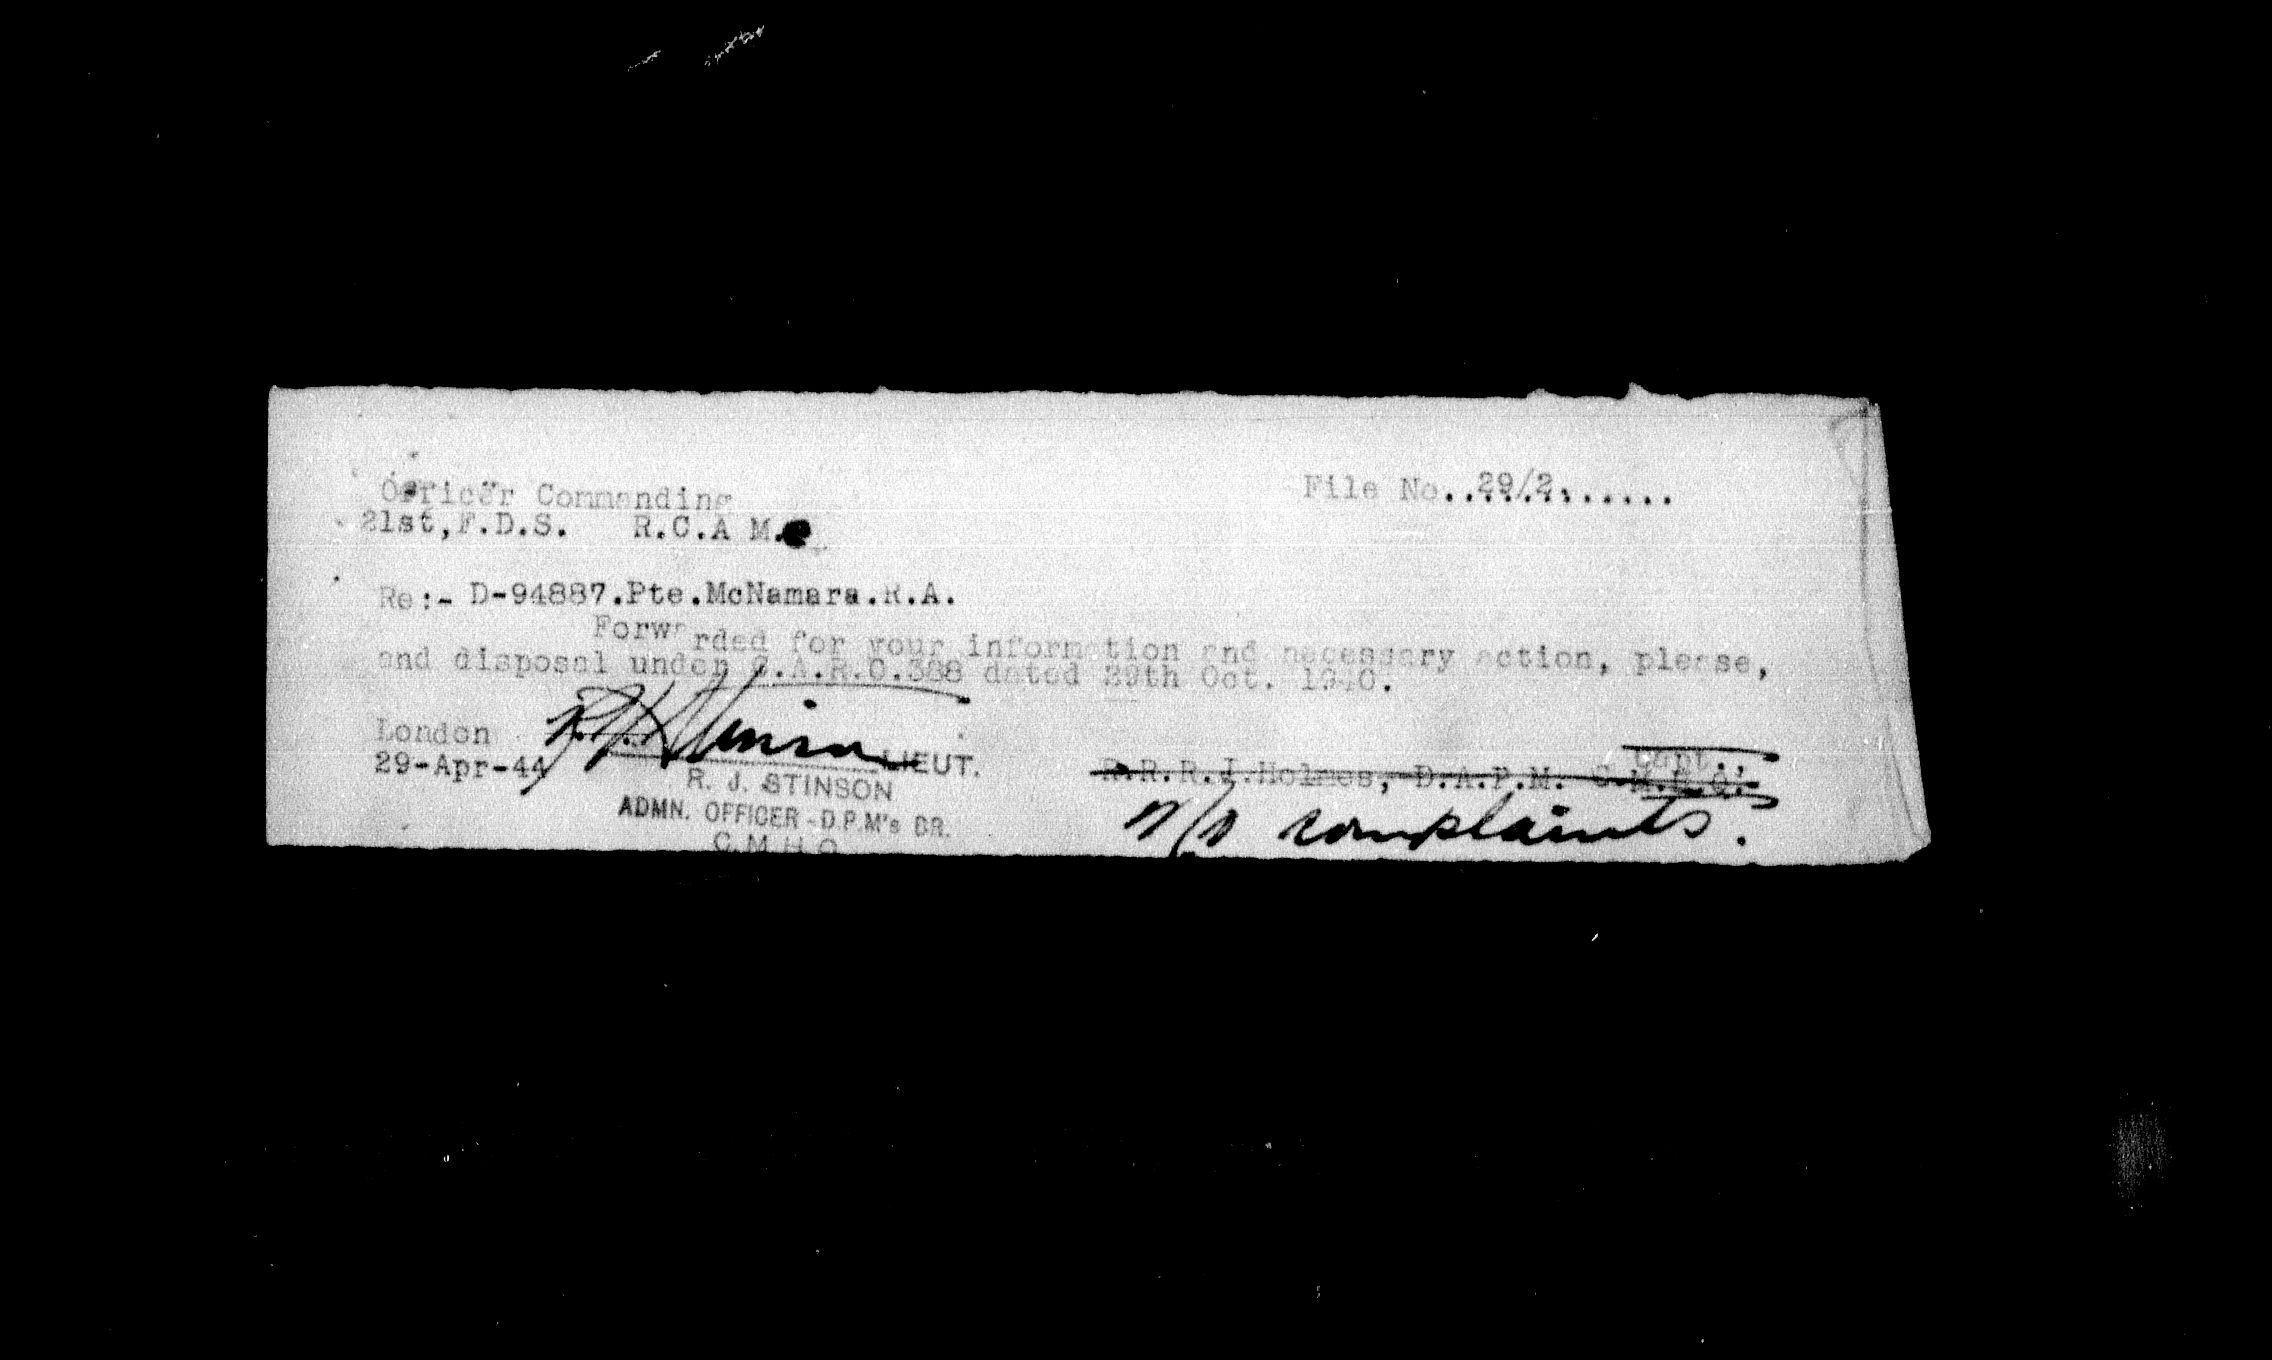 Officer Commanding
File No..29/2.......
21st,F.D.S. R.C.A M.C
Re:- D-94887.Pte.McNamara.R.A.
Forwarded for your information and necessary action, please,
and disposal under C.A.R.O.388 dated 29th Oct. 1940.
London
29-Apr-44
R. J. Stinson LIEUT.
R. J. STINSON
ADMN. OFFICER - D.P.M's BR.
C.M.H.Q.
Capt.,
R.R.R.J.Holmes, D.A.P.M. C.M.H.Q.
complaints.